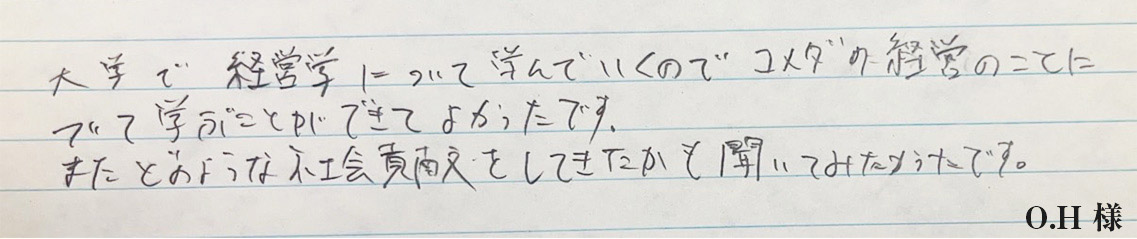 大学で経営学について学んでいくのでコメダの経営のことに
ついて学ぶことができてよかったです。
またどのような社会貢献をしてきたかも聞いてみたかったです。
O.H 様